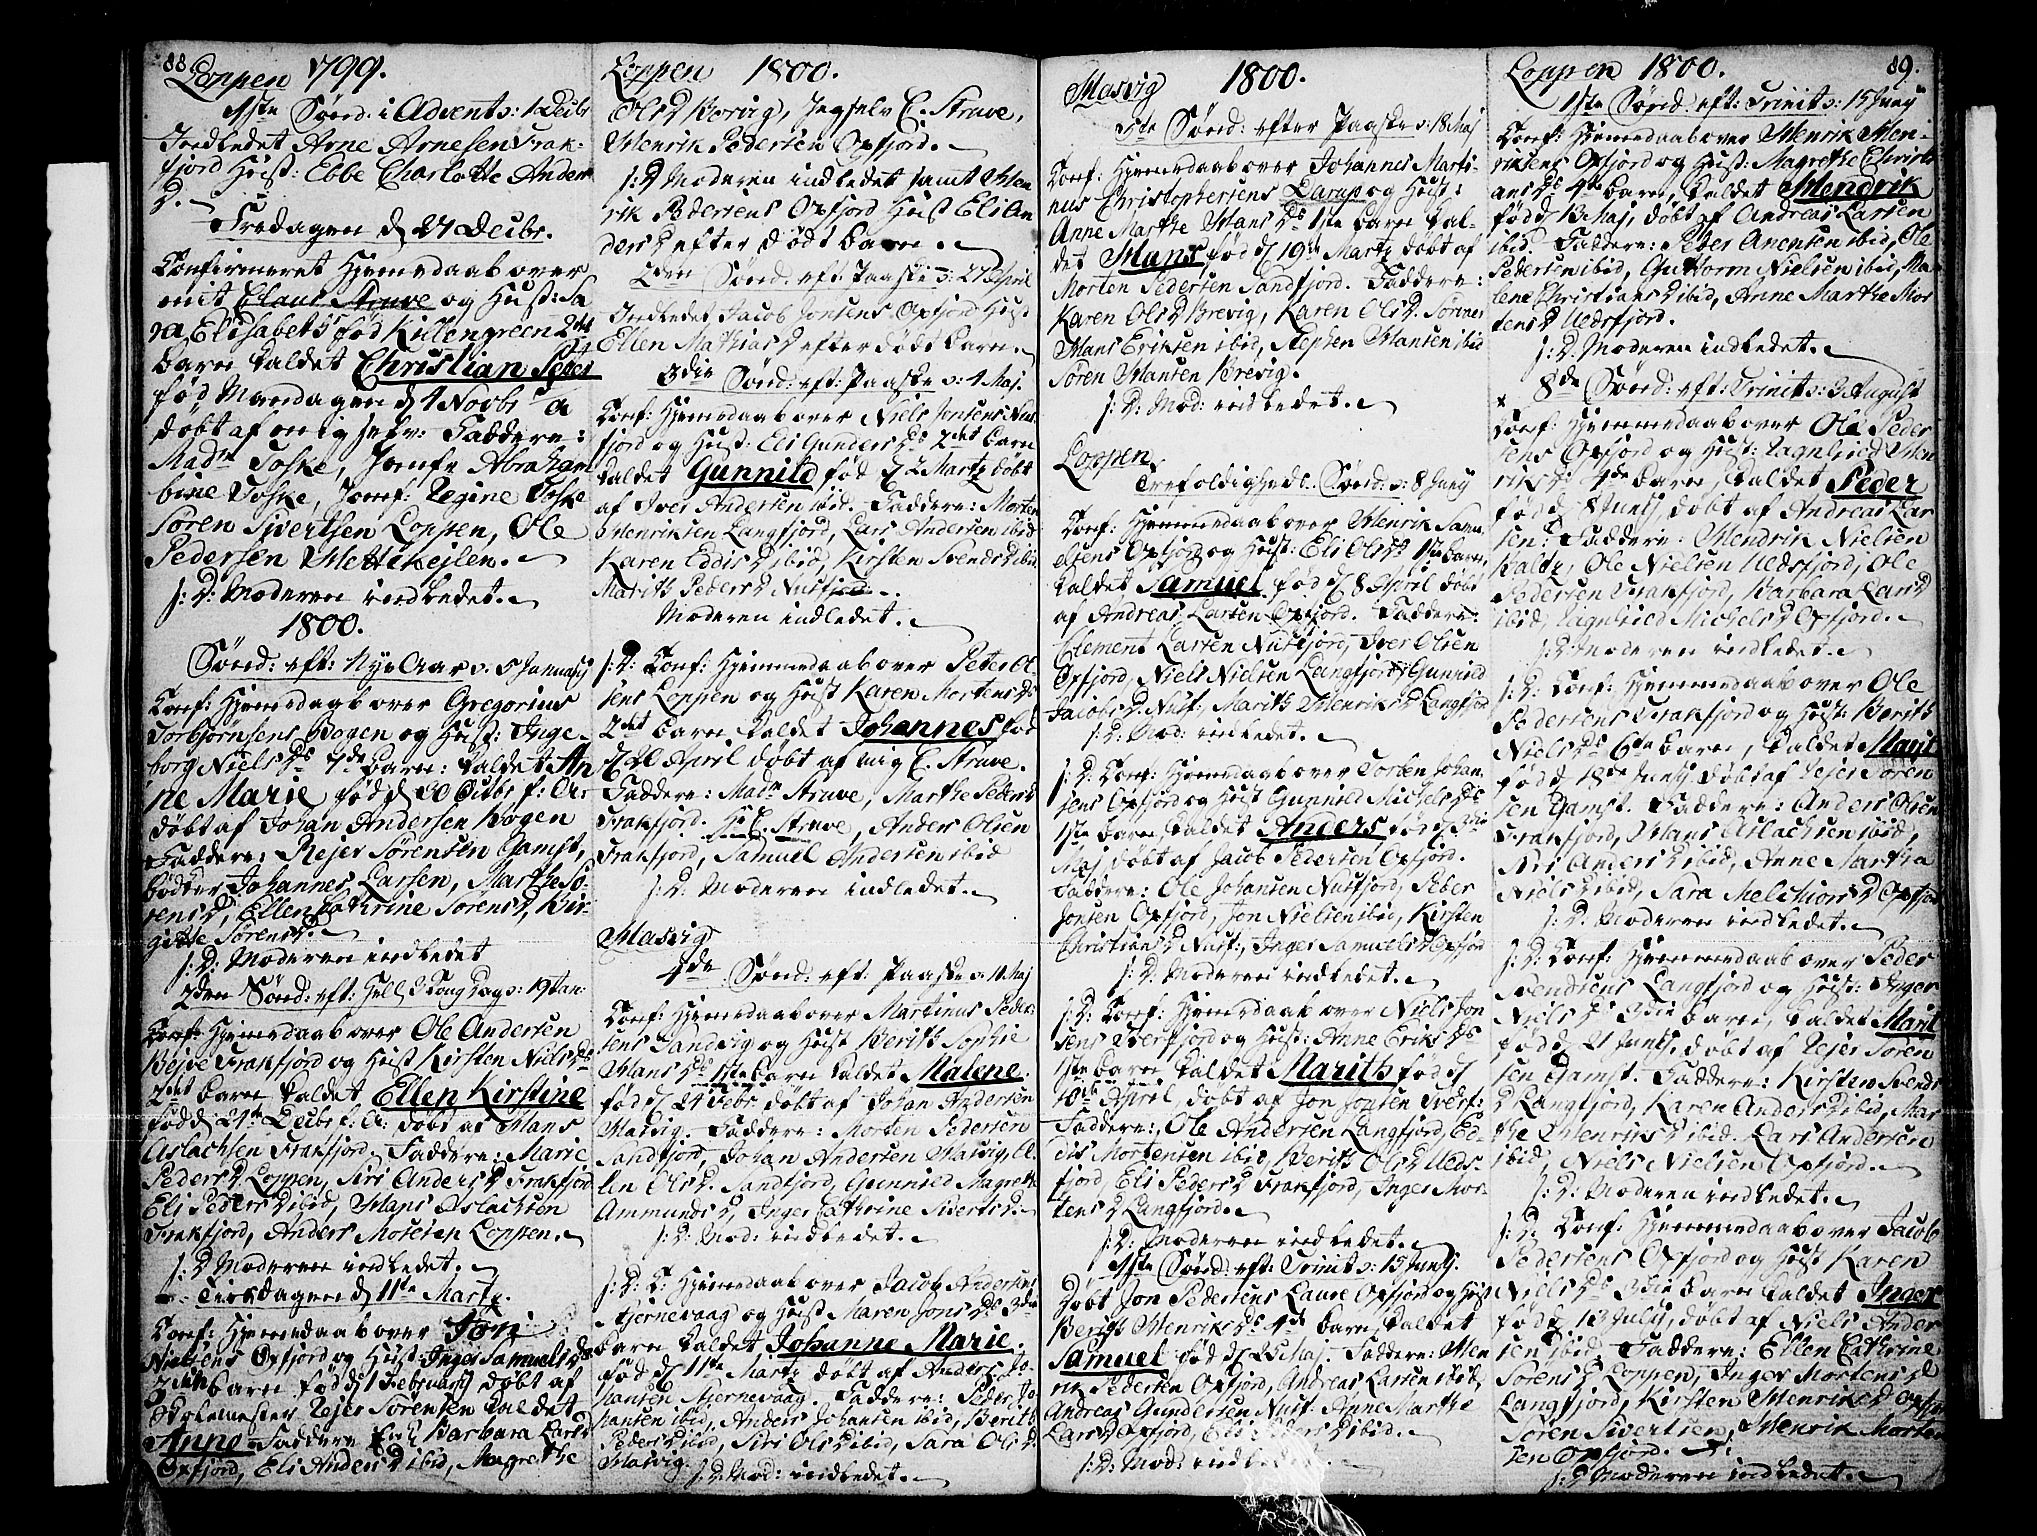 88.
Loppen 1799.
1ste Sönd. i Advent v: 1 Decbr
Indledet Arne Arnesen Frak-
fjord Hust: Ebbe Charlotte Anders
D.
Fredagen d 27 Decbr.
Confirmeret Hjemedaab over
mit Claus Struve og Hust: Sa
ra Elisabeths fød Killengreen 2det
Barn kaldet Christian Peter
fød Mandagen d 4 Novbr a
döbt af mig selv: Faddere:
Madm Foske, Jomfr Abraham
bine Foske, Jomf: Regine Foske
Sören Sivertsen Loppen, Ole
Pedersen Mettikejlen.
s: D: Moderen indledet.
1800.
Sönd: eft: Nye Aar v: 5 January
Conf: Hjemedaab over Gregorius
Torbjörnsens Bogen og Hust: Inge-
borg Niels Ds 7de Barn: kaldet An
ne Marie fød d 30 Octbr f: A:
döbt af Johan Andersen Bogen
Faddere: Rejer Sörensen Gamst,
Johannes Larsen, Marthe Sö-
rensD, Ellen Cathrine SörensD, Bir-
gitte SörensD.
s: D: Moderen indledet
2den Sönd: eft: Hell 3 Kong Dag v: 19 Jan:
Conf: Hjemedaab over Ole Andersen
Frakfjord og Hust Kirsten Niels Ds
2det Barn kaldet Ellen Kirstine
fød d 24de Decbr f: A: döbt af Hans
Aslachsen Frakfjord, Faddere: Marie
PedersD Loppen, Siri AndersD Frakfjord
Eli PedersD ibid, Hans Aslachsen
Frakfjord, Anders Mortsen Loppen.
s: D Moderen indledet.
Tirsdagen d 11te Marty.
Conf: Hjemedaab over Jon
Nielsens Opfjord og Hust: Inger Samuels Ds
Barn fød d 1 February döbt af
Skolemester Rejer Sörensen kaldet
Anne Faddere Barbara LarsD
Opfjord, Eli AndersD ibid, Magrethe
Loppen 1800.
OlsD Borvig, Jegselv C. Struve,
Henrik Pedersen Opfjord.
s: D Moderen indledet samt Hen
rik Pedersens Opfjord Hust Eli An
dersD efter Dödt Barn.
2den Sönd: eft: Paaske v: 27 April
Indledet Jacob Jonsens Opfjord Hust
Ellen MathiasD efter dödt Barn.
3die Sönd: eft: Paaske v: 4 Maj.
Conf: Hjemedaab over Niels Jonsens Nus
fjord og Hust: Eli Gunders Ds 2det Barn
kaldet Gunnild fød d 2 Marty döbt
af Iver Andersen ibid. Faddere: Morten
Henriksen Langfjord, Lars Andersen ibid
Karen EddisD ibid, Kirsten SvendsD ibid
Marith PedersD Nusfjord.
Moderen indledet.
s: D: Conf: Hjemmedaab over Peter Ol
sens Loppen og Hust Karen Mortens Ds
2det Barn kaldet Johannes fød
d 20 April döbt af mig C. Struve.
Faddere: Madm Struve, Marthe PedersD
Frakfjord. Hr C. Struve, Anders Olsen
Frakfjord, Samuel Andersen ibid
s: D: Moderen indledet.
Masvig
4de Sönd: eft: Paaske v: 11 Maj
Conf: Hjemedaab over Martinus Peder
sens Sandvig og Hust Berith Sophie
Hans Ds 1ste Barn kaldet Malene.
fød d 24 Febr döbt af Johan Andersen
Masvig. Faddere: Morten Pedersen
Sandfjord, Johan Andersen Masvig, El
len OlsD. Sandfjord, Gunnild Magrethe
AmmundsD, Inger Cathrine SivertsD
s: D: Mod: indledet.
s: D: C: Hjemedaab over Jacob Andersens
Stjernevaag og Hust Maren Jons Ds 3die
Barn kaldet Johanne Marie.
fød d 11te Marty döbt af Anders Jo-
hansen Stjernevaag. Faddere: Peder Jo
hansen ibid, Anders Johansen ibid, Berith
PedersD ibid, Siri OlsD ibid, Sara OlsD
Masvig. s: D: Mod: indledet.
Masvig 1800.
5te Sönd: efter Paaske v: 18 Maj
Conf: Hjemedaab over Johannes Marti-
nus Christophersens Darup og Hust:
Anne Marthe Hans Ds 1ste Barn kal-
det Hans, fød d 19de Marty döbt af
Morten Pedersen Sandfjord. Faddere:
Karen OlsD Brevig, Karen OlsD. Sörnes
Hans Eriksen ibid, Stephen Hansen ibid
Sören Hansen Brevig.
s: D: Mod: indledet.
Loppen
Trefoldigheds Sönd: v: 8 Juny
Conf: Hjemmedaab over Henrik Samu
elsens Opfjord og Hust: Eli Ols Ds 1ste Barn
kaldet Samuel fød d 8 April döbt
af Andreas Larsen Opfjord. Faddere:
Clement Larsen Nusfjord, Iver Olsen
Opfjord, Niels Nielsen Langfjord, Gunnild
JacobsD. Nusf:, Marith HenriksD Langfjord
s: D: Mod: indledet.
s: D: Conf: Hjemedaab over Torben Johan-
sens Opfjord og Hust Gunnild Michels Ds
1ste Barn kaldet Anders fød d 3die
Maj döbt af Jacob Pedersen Opfjord.
Faddere: Ole Johansen Nusfjord, Peder
Jonsen Opfjord, Jon Nielsen ibid, Kirsten
ChristiansD Nusf:, Inger SamuelsD Opfjord
s: D: Moderen indledet.
s: D: Conf: Hjemedaab over Niels Jon
sens Sverfjord og Hust: Anne Eriks Ds
1ste Barn kaldet Marith fød d
10de April, döbt af Jon Jonsen Sverf:
Faddere: Ole Andersen Langfjord, Ed-
dis Mortensen ibid, Berith OlsD Ueds-
fjord, Eli PedersD Frakfjord, Inger Mor-
tensD Langfjord.
s: D: Moderen indledet.
1ste Sönd: eft: Trinit v: 15 Juny.
Döbt Jon Pedersens Laure Opfjord og Hust
Berith Henriks Ds 4de Barn kaldet
Samuel fød d 25 Maj. Faddere: Hen
rik Pedersen Opfjord, Andreas Larsen ibid,
Andreas Gundersen Nusf: Anne Marthe
LarsD Opfjord, Eli PedersD ibid.
s: D: Mod: indledet.
Loppen 1800. 89.
1ste Sönd: eft: Trinit v: 15 Juny
Conf: Hjemedaab over Henrik Hen-
riksens Opfjord og Hust: Magrethe Christi
ans Ds 4de Barn kaldet Hendrik
fød d 13 Maj, döbt af Andreas Larsen
ibid Faddere: Peder Anensen ibid, Ole
Pedersen ibid, Guttorm Nielsen ibid, Ma-
lene ChristiansD ibid, Anne Marthe Mor
tensD Uedsfjord.
s: D: Moderen indledet.
8de Sönd: eft: Trinit v: 3 August
Conf: Hjemmedaab over Ole Peder
sens Opfjord og Hust: Ragnhild Hen
riks Ds 4de Barn, kaldet Peder
fød d 8 Juny döbt af Andreas Lar
sen: Faddere: Hendrik Nielsen
Kalty, Ole Nielsen Uedsfjord, Ole
Pedersen Frakfjord, Barbara LarsD
ibid, Ragnhild MichelsD Opfjord.
s: D Moderen indledet.
s: D: Conf: Hjemmedaab over Ole
Pedersens Frakfjord og Hust: Berith
Niels Ds 6te Barn, kaldet Marit
fød d 18de Juny, döbt af Rejer Sören
sen Gamst. Faddere: Anders Olsen
Frakfjord, Hans Aslachsen ibid,
Siri AndersD ibid, Anne Martha
NielsD ibid, Sara MelchiorsD Opfjord
s: D: Moderen indledet.
s: D: Conf: Hjemmedaab over Peder
Svendsens Langfjord og Hust: Inger
Niels Ds 3die Barn, kaldet Marit
fød d 21 Juny, döbt af Rejer Sören
sen Gamst. Faddere: Kirsten Svends
D Langfjord, Karen AndersD ibid, Mar
the HenriksD ibid. Lars Andersen
ibid, Niels Nielsen Opfjord.
s: D: Moderen indledet.
s: D: Conf: Hjemmedaab over Jacob
Pedersens Opfjord og Hust Karen
Niels Ds 3die Barn kaldet Inger
fød d 13 July, döbt af Niels Ander
sen ibid. Faddere: Ellen Cathrine
SörensD Loppen, Inger MortensD
Langfjord, Kirsten HenriksD Opfjord
Sören Sivertsen, Henrik Morten
sen Opfjord.
s: D Moderen indledet.